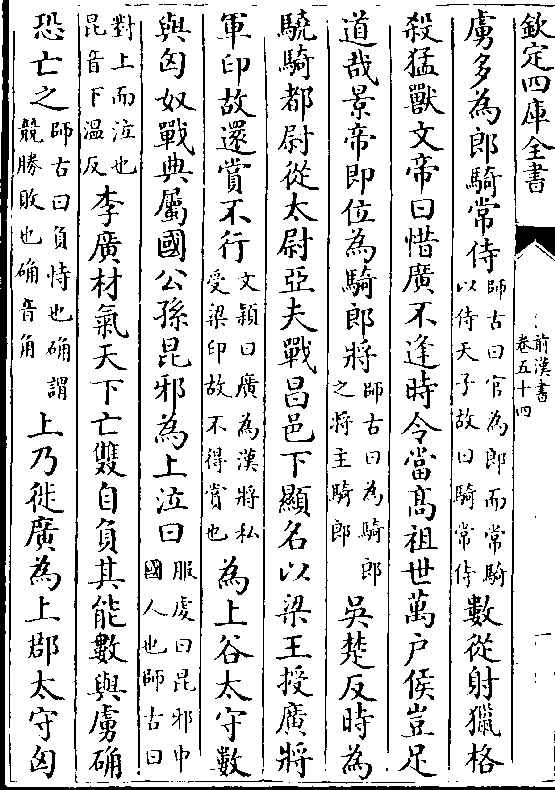 欽定四庫全書
前漢書
卷五十四
一
虜多為郎騎常侍師古曰官為郎而常騎以侍天子故曰騎常侍數從射獵格
殺猛獸文帝曰惜廣不逢時令當髙祖世萬户侯豈足
道哉景帝即位為騎郎將師古曰為騎郎之將主騎郎吳楚反時為
驍騎都尉從太尉亞夫戰昌邑下顯名以梁王授廣將
軍印故還賞不行文穎曰廣為漢將私受梁印故不得賞也為上谷太守數
與匈奴戰典屬國公孫昆邪為上泣曰服虔曰昆邪中國人也師古曰
對上而泣也昆音下温反李廣材氣天下亡雙自負其能數與虜确
恐亡之師古曰負恃也确謂競勝敗也确音角上乃徙廣為上郡太守匈